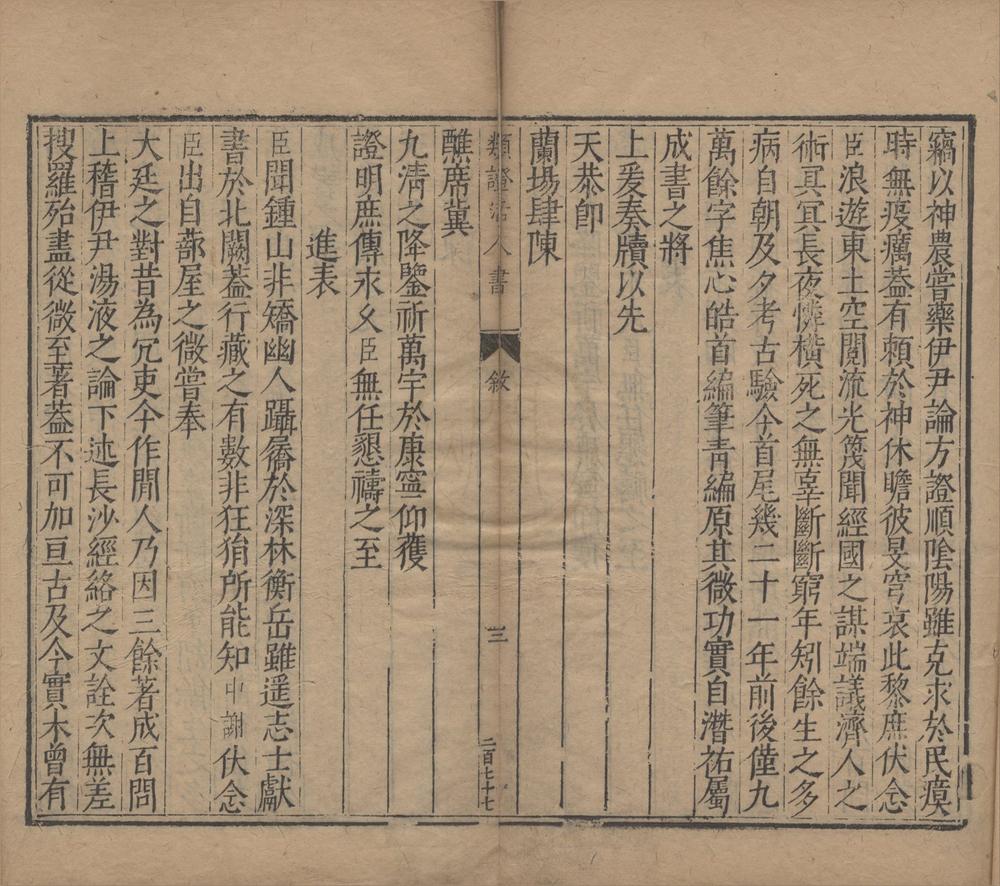 竊以神農嘗藥伊尹論方證順陰陽雖克求於民瘼
時無疫癘蓋有賴於神休瞻彼旻穹哀此黎庶伏念
臣浪遊東土空閱流光篾聞經國之謀端議濟人之
術冥冥長夜憐橫死之無辜斷斷窮年矧餘生之多
病自朝及夕考古驗今首尾幾二十一年前後僅九
萬餘字焦心皓首編筆青編原其微功實自潛祐屬
成書之將
上爰奏牘以先
天恭卽
蘭場肆陳
醮席冀
類證活人書
敘
三
二百七十七
九清之降鑒祈萬宇於康寧仰蒦
證明庶傳永乆臣無任懇禱之至
進表
臣聞鍾山非矯幽人躡屩於深林衡岳雖遥志士獻
書於北闕蓋行藏之有數非狂狷所能知中謝伏念
臣出自蔀屋之微嘗奉
大廷之對昔為冗吏今作閒人乃因三餘著成百問
上稽伊尹湯液之論下述長沙經絡之文詮次無差
搜羅殆盡從微至著蓋不可加亘古及今實未曾有